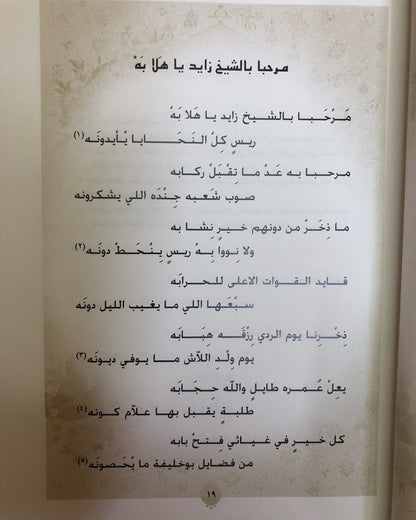 مرحبا بالشيخ زايد يا هَلا بَهْ
مَرْحَبا بالشيخ زايد يا هَلا بَهْ
ريس كِلْ النَحَايا يُأيدونَه(١)
مرحبا به عَدْ ما تِقْبَلْ ركابه
صوب شَعبه جِنْدَه اللي يشكرونه
ما ذِخَرْ من دونهم خيرٍ نِشا به
ولا نِووا بِهْ ريسٍ يِنْحَطْ دونه(٢)
قايد القوات الاعلى للحرابَه
سبْعَها اللي ما يغيب الليل دونَه
ذِخْرِنا يوم الردي رِزْقَه هِبَابَه
يوم ولْدِ اللآش ما يوفي ديونَه(٣)
يعلْ عُمره طايلٍ واللّه حِجَابَه
طلبةٍ يقبل بها علاّم كونه(٤)
كل خيرٍ في غيائي فِتحْ بابه
من فضايل بوخليفة ما يْحَصونَه(٥)
١٩